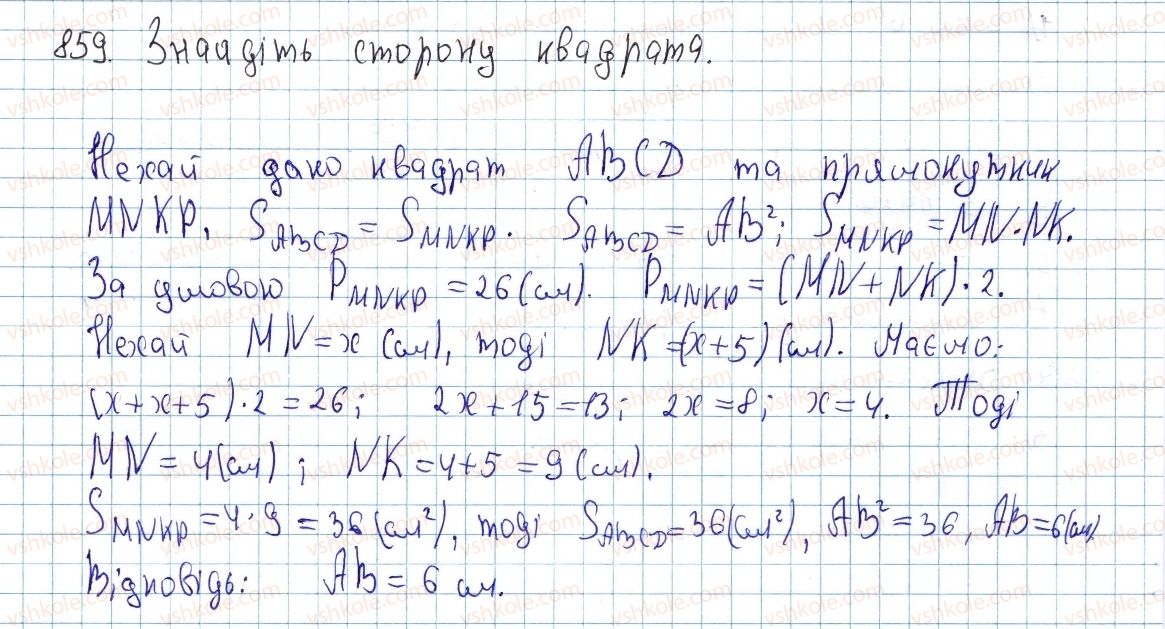 859. Знаадіть сторону квадрата.
Нехай дано квадрат ABCD та прямокутник
MNKP, S_ABCD = S_MNKP. S_ABCD = AB²; S_MNKP = MN·NK.
За умовою P_MNKP = 26 (см). P_MNKP = (MN + NK)·2.
Нехай MN = x (см), тоді NK = (x+5) (см). Маємо:
(x+x+5)·2 = 26; 2x+15=13; 2x=8; x=4. Тоді
MN = 4 (см); NK = 4+5 = 9 (см).
S_MNKP = 4·9 = 36 (см²), тоді S_ABCD = 36 (см²), AB² = 36, AB = 6 (см)
Відповідь: AB = 6 см.